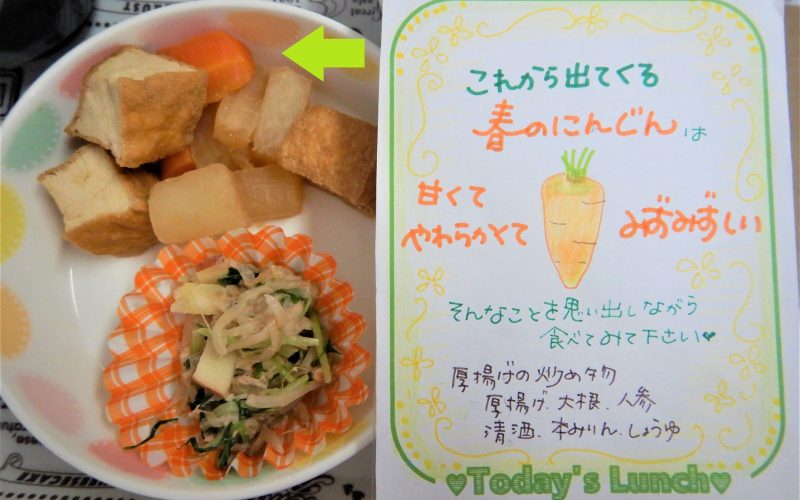 これから出てくる
春のにんじんは
甘くて
やわらかくて
みずみずしい
そんなことを思い出しながら
食べてみて下さい♥
厚揚げの炒め物
厚揚げ、大根、人参
清酒、本みりん、しょうゆ
♥Today's Lunch♥
CHEESECAKE